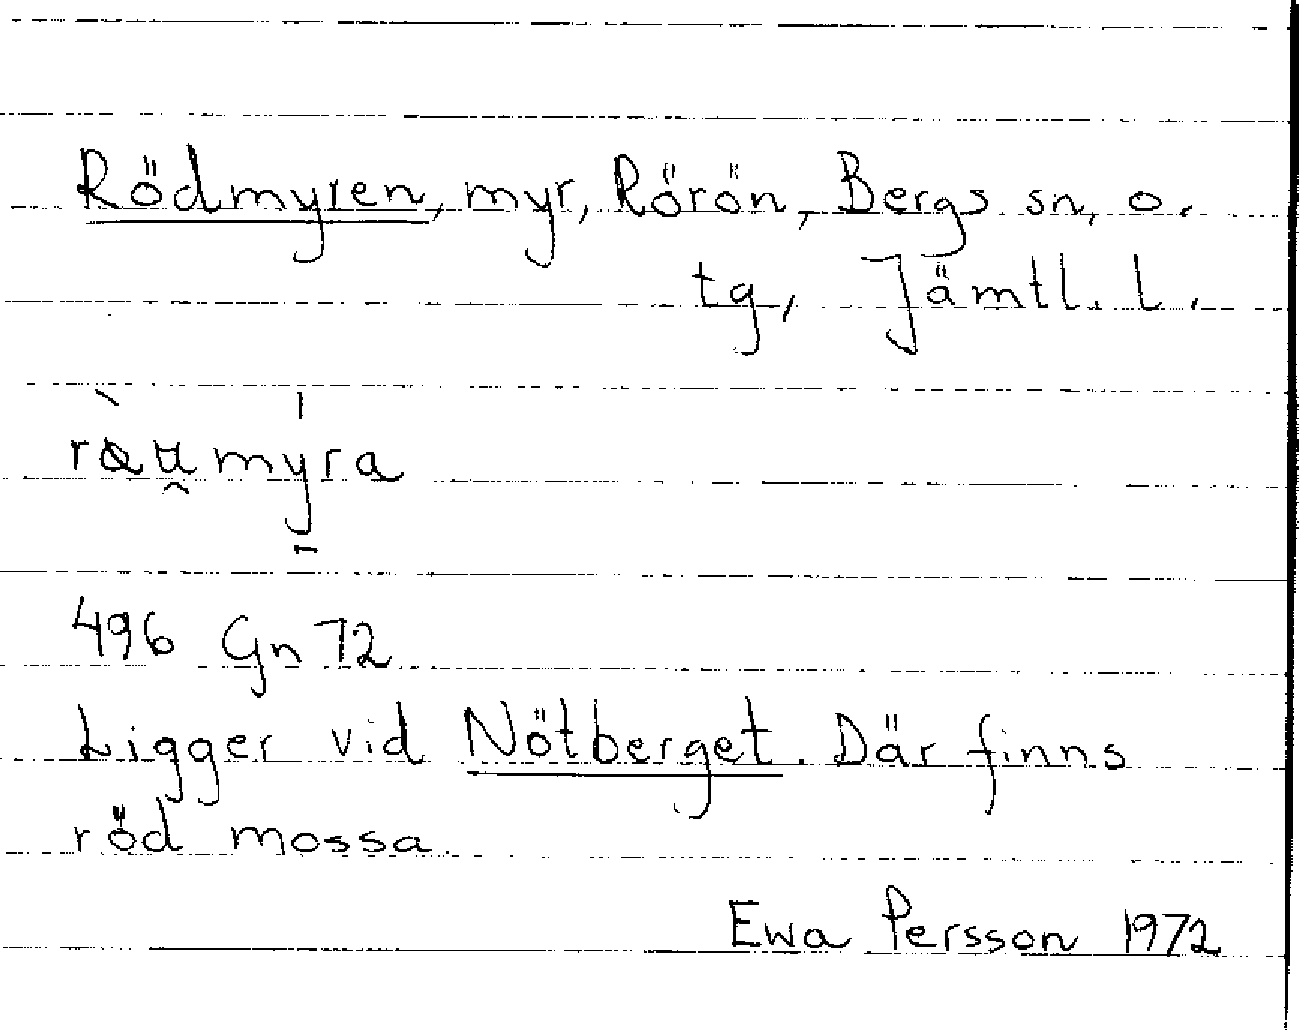 Rödmyren, myr, Rörön, Bergs sn, o.
tg, Jämtl. l.
496 Gn 72
Ligger vid Nötberget. Där finns
röd mossa.
Ewa Persson 1972